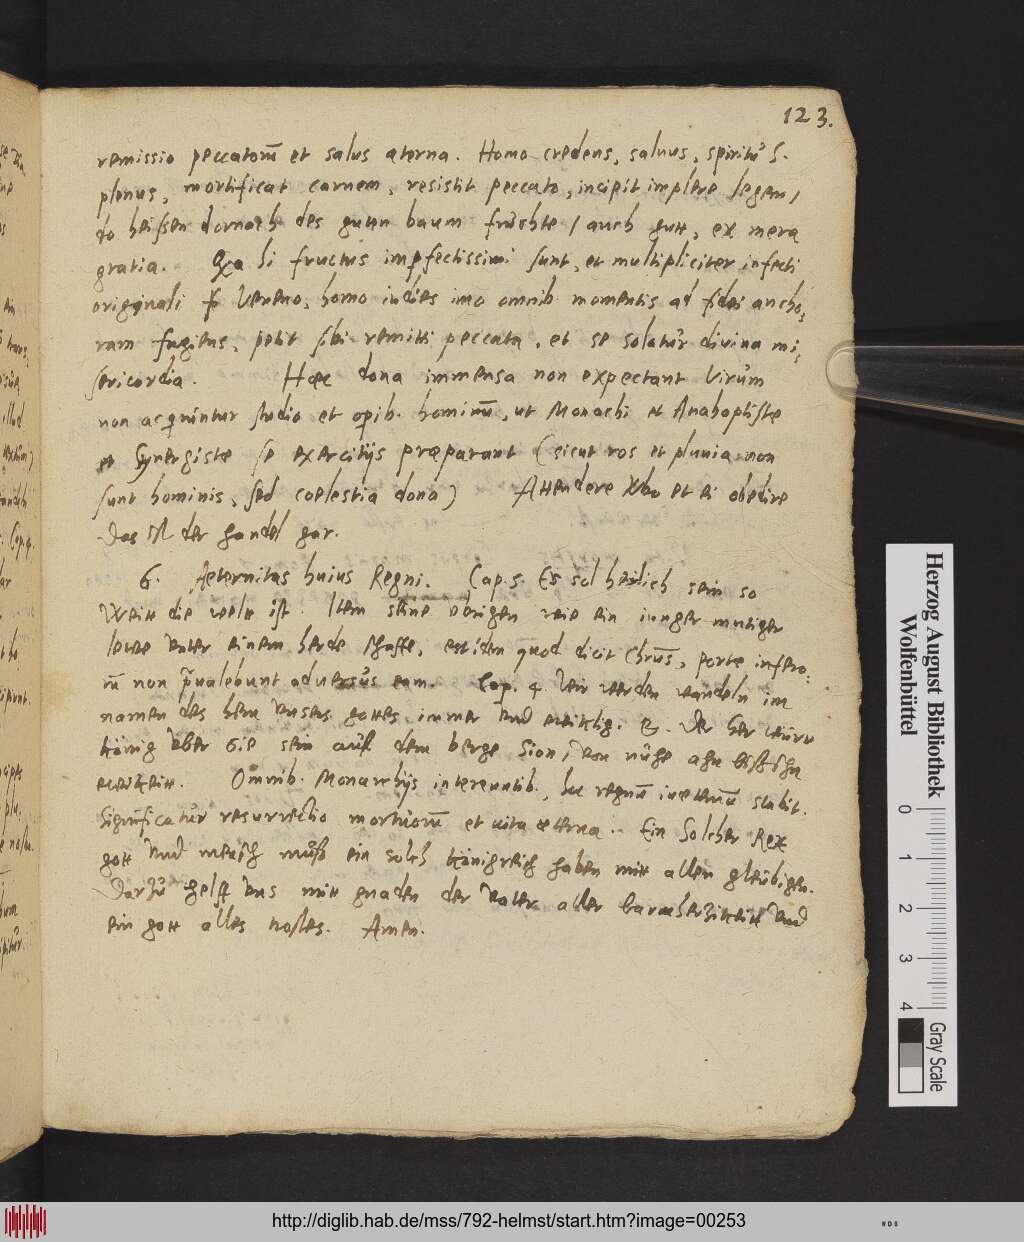 123.
remissio peccatorū et salus aterna. Homo credens, saluus, spiritū S.
plenus, mortificat carnem, resistit peccato, incipit implere legem /
do heissen dornach des guten baum früchte / auch gutt, ex mera
gratia. Qa hi fructus imperfectissimi sunt, et multipliciter infecti
originali veneno, homo indies imo omnib. momentis ad fidei ancho,
ram fugiens, petit sibi remitti peccata, et se solatur divina mi,
sericordia. Hæc dona immensa non expectant virum
non acquiruntur studio et opib. hominū, ut Monachi et Anabaptiste
et Synergiste se exercitijs præparant (sicut ros et pluuia non
sunt hominis, sed coelestia dona) Attendere Xbo et ei obedire
das ist der handel gar.
6. Aeternitas huius Regni. Cap. 5. Es sol herlich sein so
weitt die welt ist. Item seine vbrigen wie ein iunger mutiger
lewe vnter einem herde schaffe, est idem quod dicit Christus, portæ infero:
rū non prævalebunt adversus eam. Cap. 4. Wir werden wandeln im
namen des hern vnsers gottes immer vnd ewiklig. Der her wirt
könig vber sie sein auff dem berge Sion, von nuhe ahn biss ihn
ewikeitt. Omnib. Monarchijs intereuntib., hec regnū in æternū stabit.
Significatur resurrectio mortuorū et uita æterna. Ein solcher Rex
gott vnd mensch muß ein solch königreich haben mitt allen gleubigen.
Darzu helff vns mitt gnaden der vater aller barmherzikeitt vnd
ein gott alles trostes. Amen.
Herzog August Bibliothek
Wolfenbüttel
0 1 2 3 4
Gray Scale
http://diglib.hab.de/mss/792-helmst/start.htm?image=00253